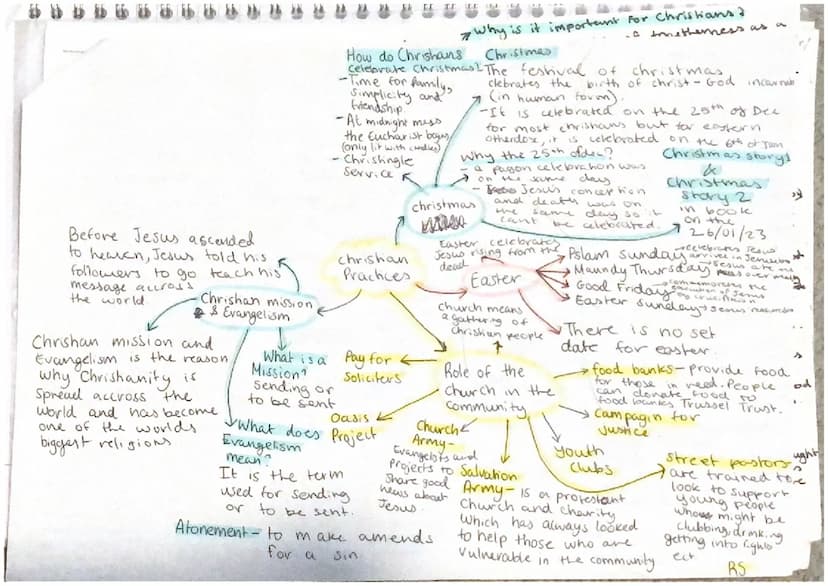 Why is it important for Christians?
togetherness as a
How do Chrishans
celebrate Christmas?
- Time for family,
simplicity and
friendship.
- At midnight mass
the Eucharist begins
(only lit with candles)
- Chrisingle
service
Christmas
The festival of christmas
clebrates the birth of christ - God incarnate
(in human form).
- It is celebrated on the 25th of Dec
for most chrishans but for eastern
othordox, it is celebrated on the 6th of Jan
Why the 25th of dec?
- a pagon celebration was
on the same day
- Jesus' conception
and death was on
the same day so it
can't be celebrated.
Christmas story 1
&
Christmas
story 2
in book
on the
26/01/23
christmas
christian
Practices
Before Jesus ascended
to heaven, Jesus told his
followers to go teach his
message across
the world
Chrishan mission
& Evangelism
Chrishan mission and
Evangelism is the reason
why Chrishanity is
spread accross the
world and has become
one of the worlds
biggest religions
What is a
Mission?
sending or
to be sent
What does
Evangelism
mean?
It is the term
used for sending
or to be sent.
Atonement - to make amends
for a sin
Easter celebrates
Jesus rising from the
dead
Easter
Pslam sunday
celebrates Jesus
arrives in Jerusalem
Maundy Thursday
Jesus ate his
pass over meal
Good Friday
commemorates the
crucifixion of Jesus
Easter sunday
There is no set
date for easter.
church means
a gathering of
Christian people
Role of the
Church in the
community
Pay for
soliciters
Oasis
Project
Church
Army-
Evangelists and
Projects to
share good
news about
Jesus
Salvation
Army - is a protestant
Church and charity
which has always looked
to help those who are
vulnerable in the community
Youth
clubs
food banks - provide food
for those in need. People
can donate food to
food banks Trussel Trust.
Campagin for
justice
Street pastors
are trained to
look to support
young people
who might be
clubbing, drinking
getting into fights
ect
RS